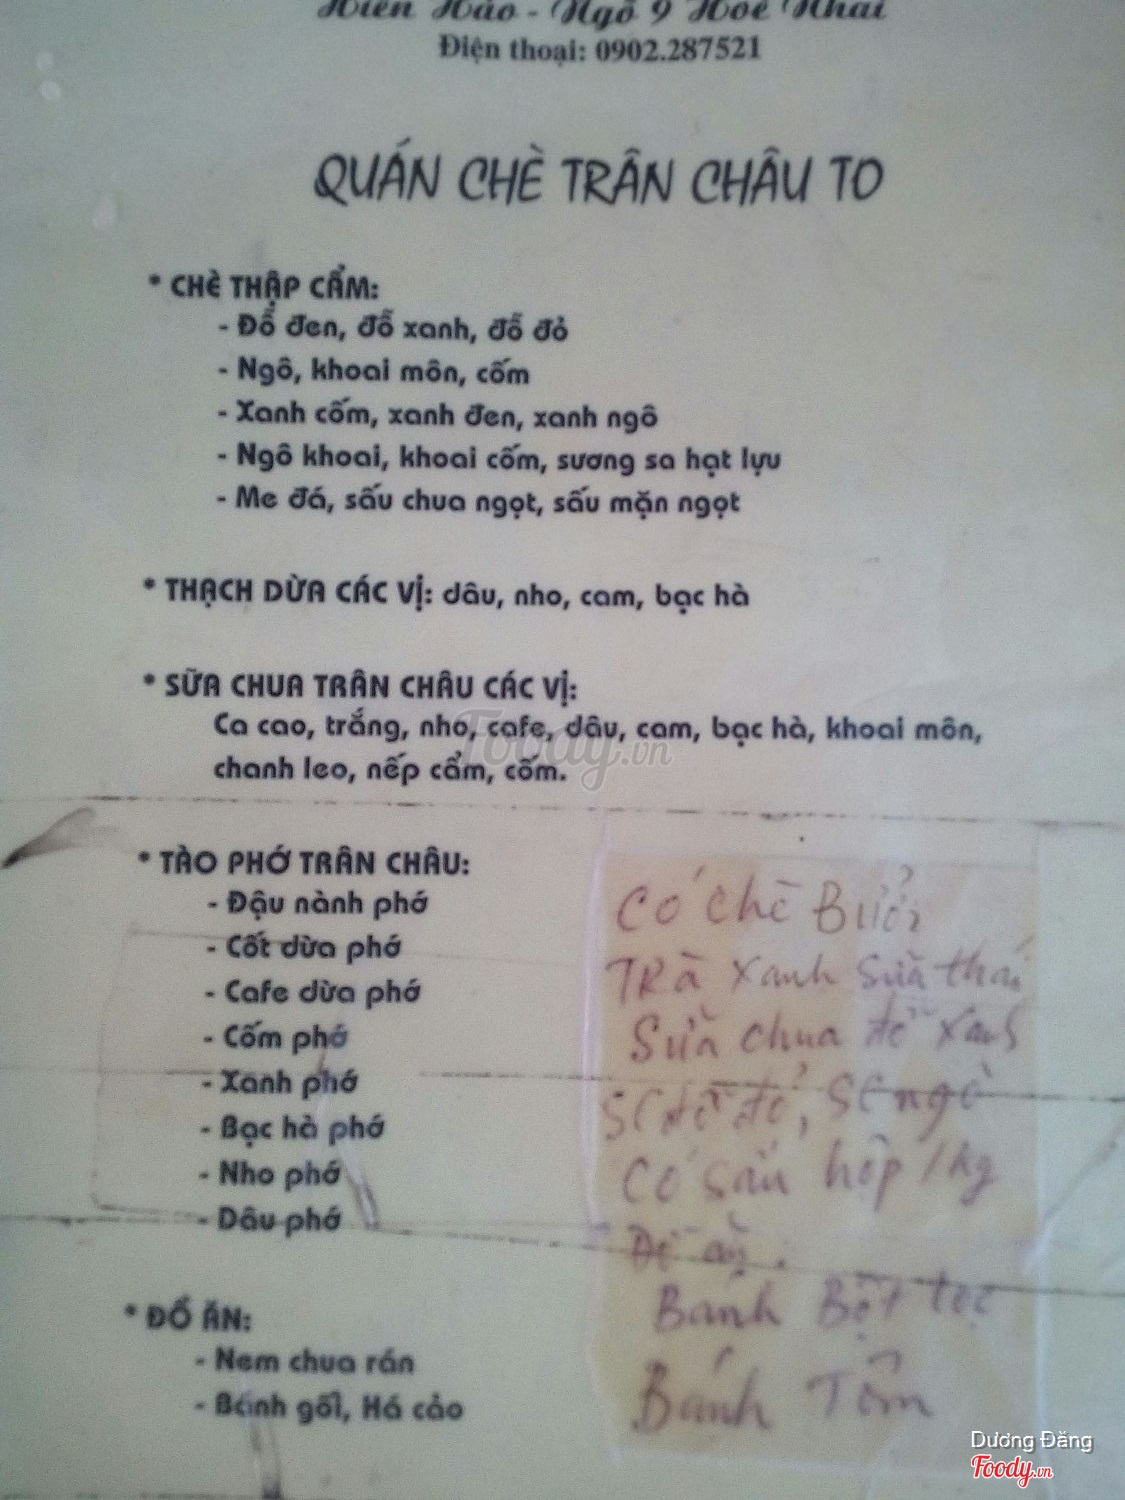 Hiền Hảo - Ngõ 9 Hoè Nhai
Điện thoại: 0902.287521
QUÁN CHÈ TRÂN CHÂU TO
* CHÈ THẬP CẨM:
- Đỗ đen, đỗ xanh, đỗ đỏ
- Ngô, khoai môn, cốm
- Xanh cốm, xanh đen, xanh ngô
- Ngô khoai, khoai cốm, sương sa hạt lựu
- Me đá, sấu chua ngọt, sấu mặn ngọt
* THẠCH DỪA CÁC VỊ: dâu, nho, cam, bạc hà
* SỮA CHUA TRÂN CHÂU CÁC VỊ:
Ca cao, trắng, nho, cafe, dâu, cam, bạc hà, khoai môn,
chanh leo, nếp cẩm, cốm.
Foody.vn
* TÀO PHỚ TRÂN CHÂU:
- Đậu nành phớ
- Cốt dừa phớ
- Cafe dừa phớ
- Cốm phớ
- Xanh phớ
- Bạc hà phớ
- Nho phớ
- Dâu phớ
* ĐỒ ĂN:
- Nem chua rán
- Bánh gối, Há cảo
Có chè Bưởi
TRà xanh sữa thái
Sữa chua đỗ xanh
SC đỗ đỏ, SC ngô
Có sấu hộp 1kg
Đồ ăn:
Bánh Bột lọc
Bánh Tôm
Dương Đăng
Foody.vn